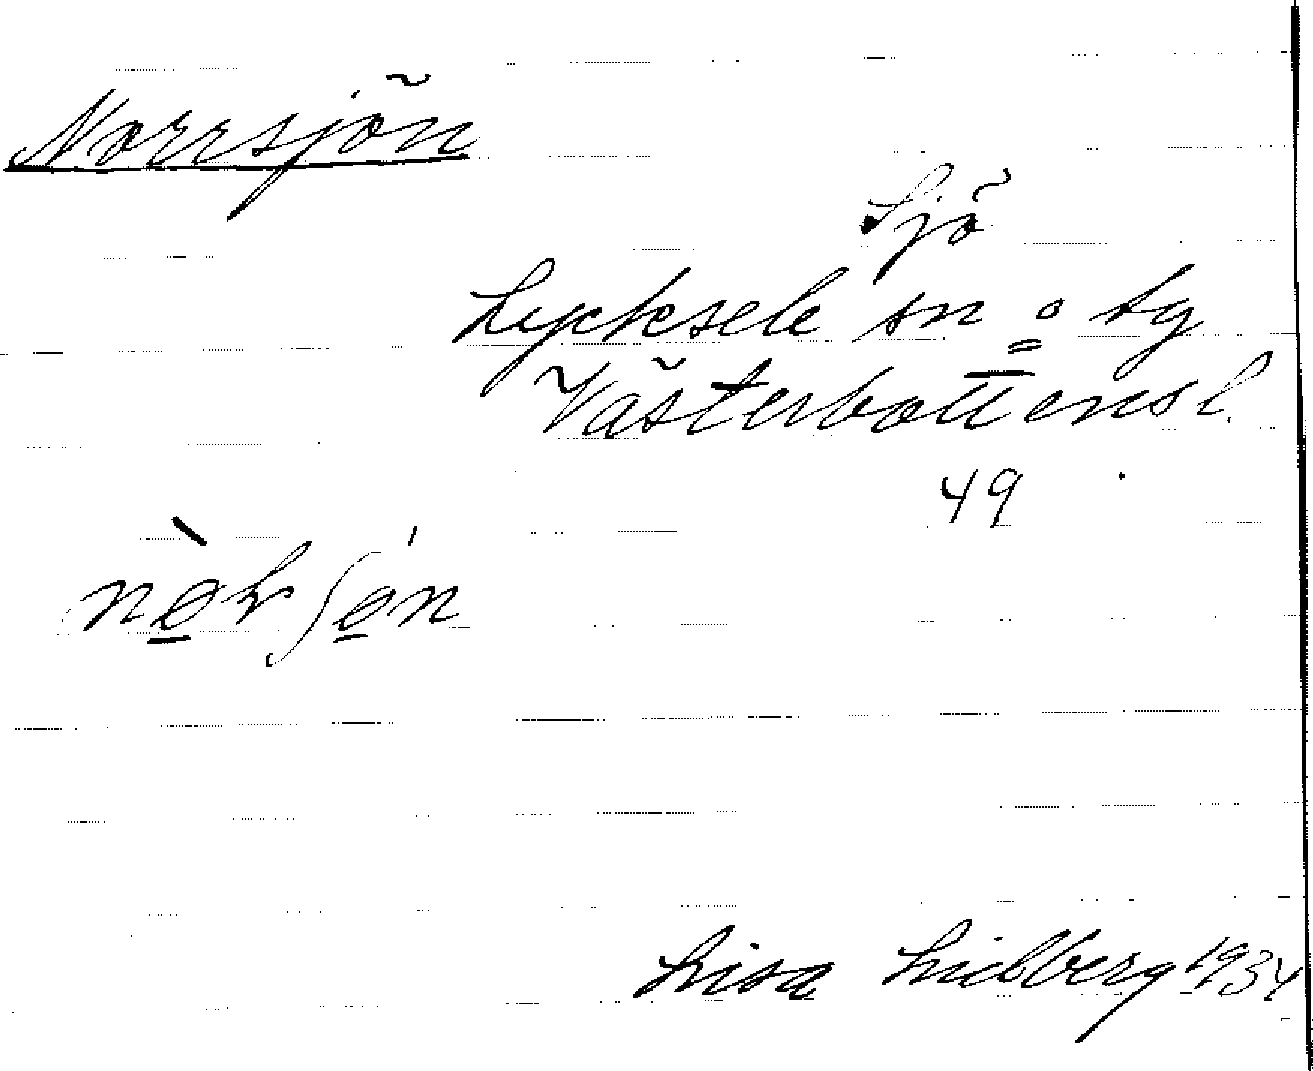 Norrsjön
Sjö
Lycksele sn o tg
Västerbottensl.
49
Lisa Lidberg 1934